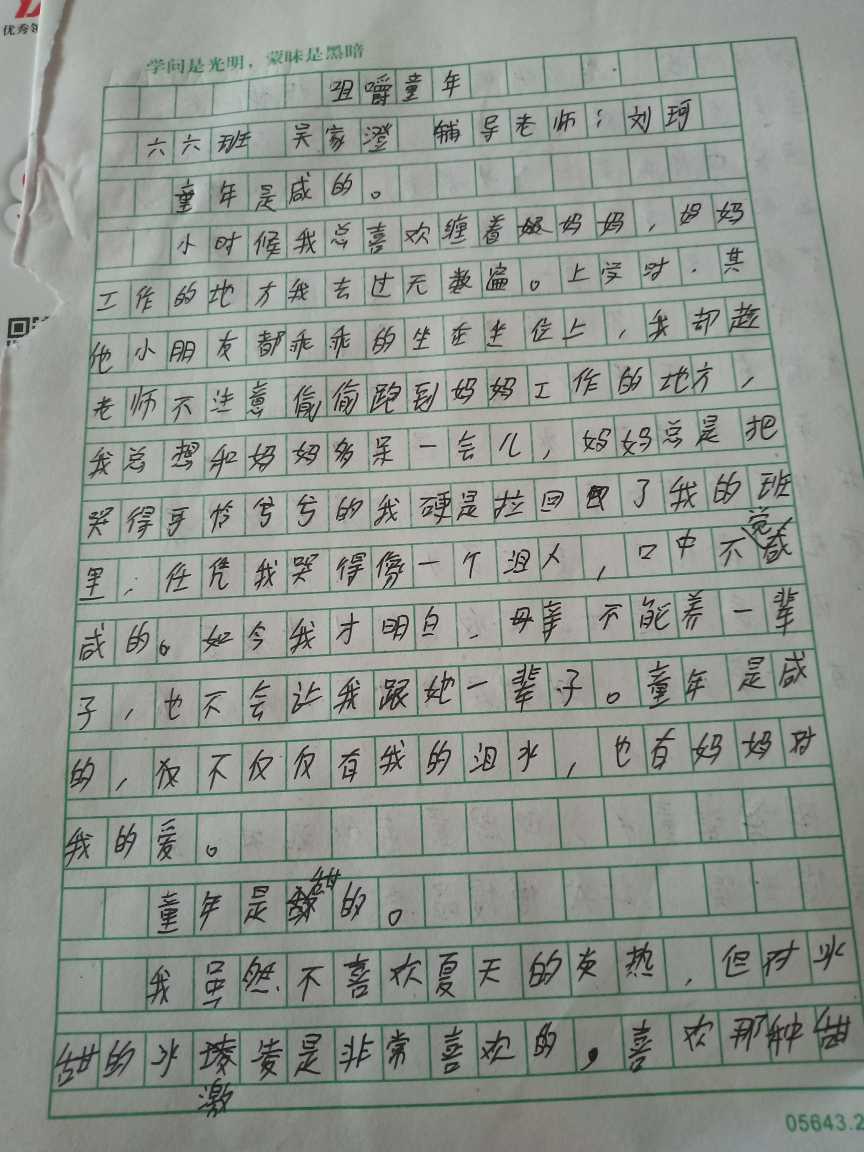 优秀领
学问是光明，蒙昧是黑暗
咀嚼童年
六六班 吴家澄 辅导老师：刘珂
童年是咸的。
小时候我总喜欢缠着妈妈，妈妈
工作的地方我去过无数遍。上学时，其
他小朋友都乖乖的坐在坐位上，我却趁
老师不注意偷偷跑到妈妈工作的地方，
我总想和妈妈多呆一会儿，妈妈总是把
哭得可怜兮兮的我硬是拉回了我的班
里，任凭我哭得像一个泪人，口中不觉咸
咸的。如今我才明白，母亲不能养一辈
子，也不会让我跟她一辈子。童年是咸
的，仅不仅仅有我的泪水，也有妈妈对
我的爱。
童年是甜的。
我虽然不喜欢夏天的炎热，但对冰
甜的冰凌是非常喜欢的，喜欢那种甜
激
05643.2